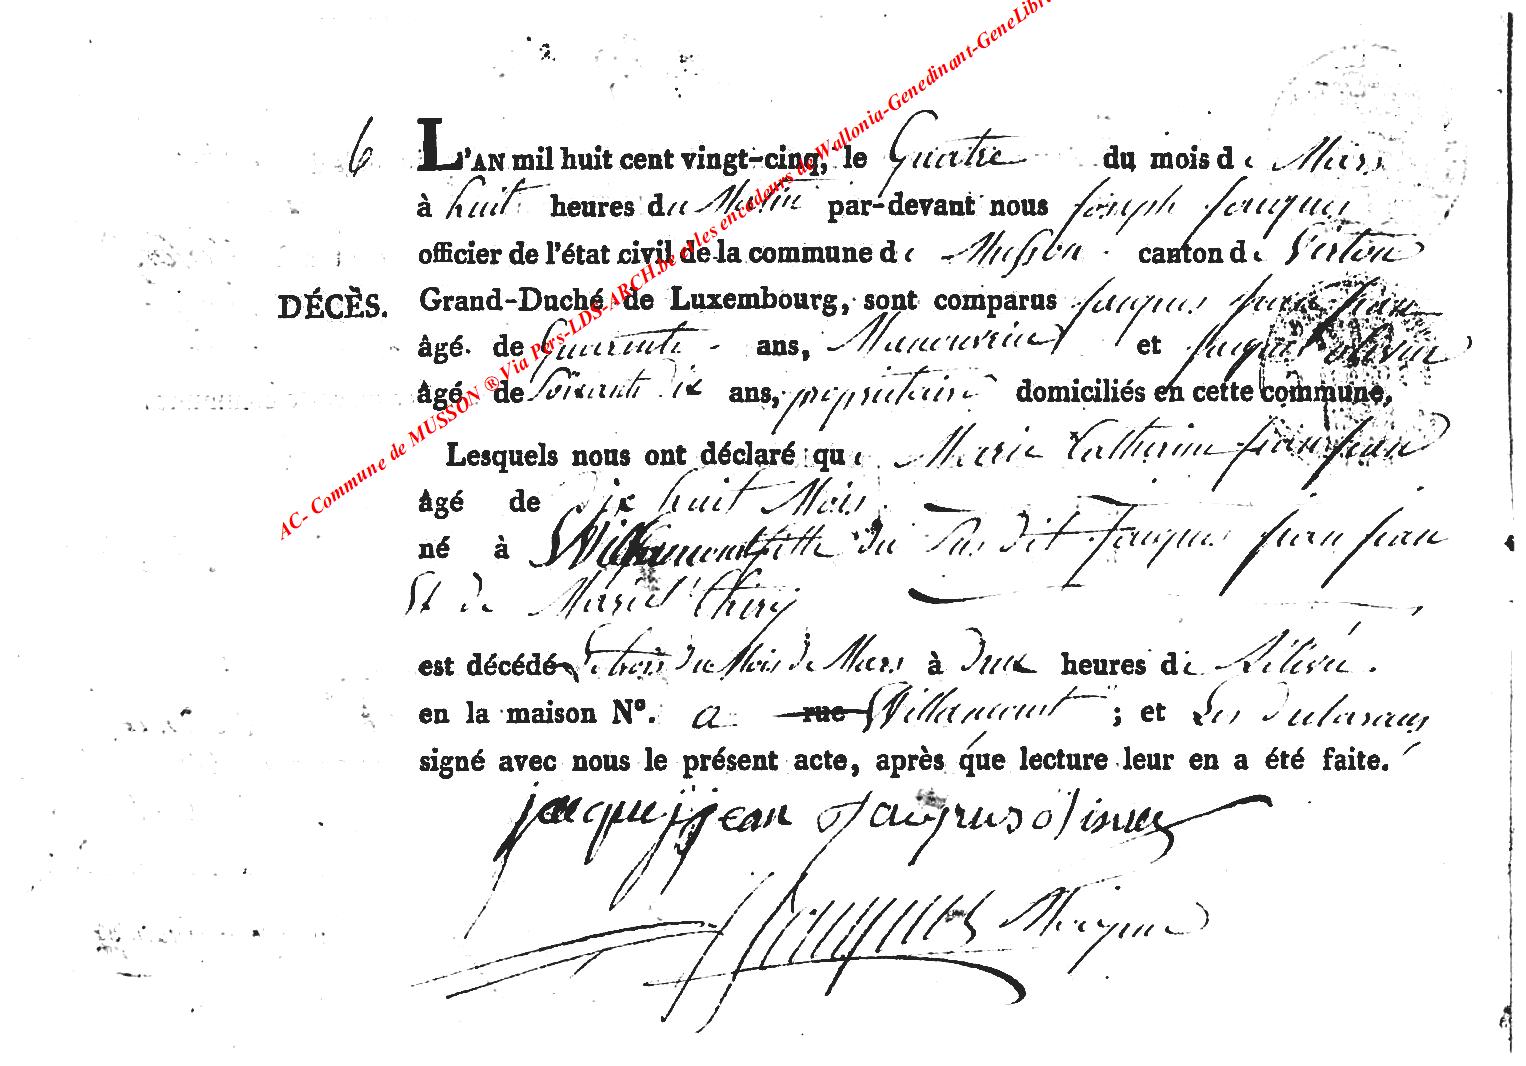 AC- Commune de MUSSON ® Via Pers-LDS-ARCH.be et les encodeurs de Wallonia-Genedinant-GeneLibr
6 L'AN mil huit cent vingt-cinq, le Quatre du mois de Mars
à huit heures du Matin par-devant nous joseph jacques
officier de l'état civil de la commune de Musson canton de Virton
DÉCÈS. Grand-Duché de Luxembourg, sont comparus jacques jean jean
âgé de Quarente ans, Manouvrier et jacques olivier
âgé de Soixante dix ans, proprietaire domiciliés en cette commune,
Lesquels nous ont déclaré que Marie Catherine jean jean
âgé de dix huit Mois
né à Willancourt fille du Sus dit jacques jean jean
Et de Marie Thiry
est décédé Le trois du Mois de Mars à deux heures de Relevée.
en la maison N°. a rue Willancourt ; et Les declarans
signé avec nous le présent acte, après que lecture leur en a été faite.
jacque jjean Jacques olivier
Jacques Mayeur